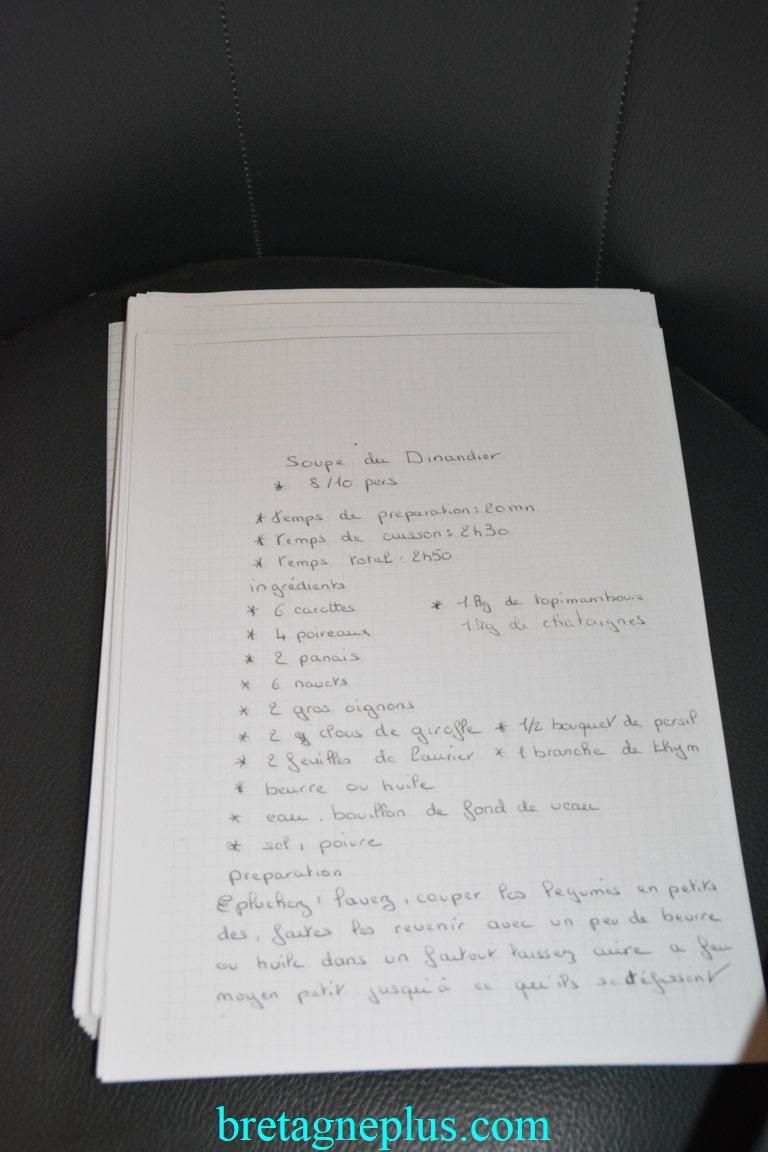 Soupe du Dinandier
* 8/10 pers
* temps de preparation : 20mn
* temps de cuisson : 2h30
* temps total : 2h50
ingrédients
* 6 carottes * 1 kg de topimambours
* 4 poireaux 1 kg de chataignes
* 2 panais
* 6 navets
* 2 gros oignons
* 2 clous de girofle * 1/2 bouquet de persil
* 2 feuilles de laurier * 1 branche de thym
* beurre ou huile
* eau. bouillon de fond de veau
* sel, poivre
preparation
épluchez, lavez, couper les legumes en petits
des, faites les revenir avec un peu de beurre
ou huile dans un faitout laissez cuire a feu
moyen petit jusqu'à ce qu'ils se défassent
bretagneplus.com